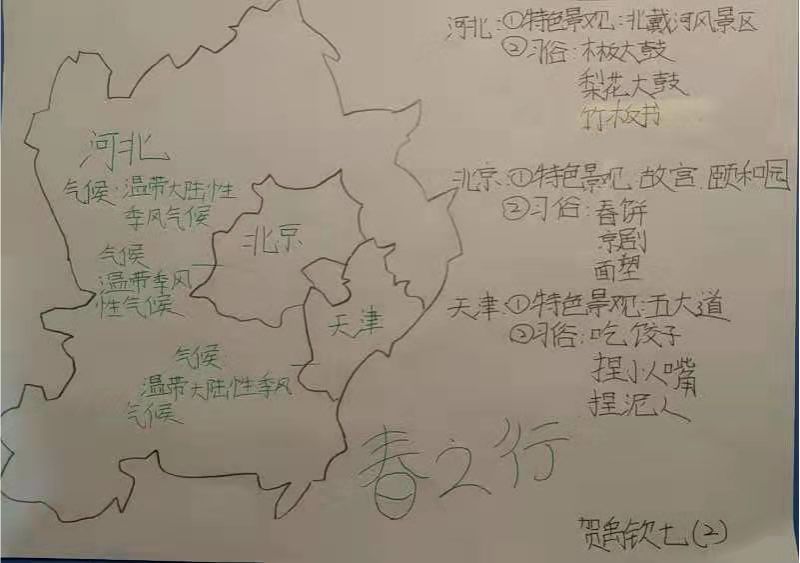 河北:①特色景观:北戴河风景区
②习俗:木板大鼓
梨花大鼓
竹板书
北京:①特色景观:故宫 颐和园
②习俗:春饼
京剧
面塑
天津:①特色景观:五大道
②习俗:吃饺子
捏小人嘴
捏泥人
河北
气候:温带大陆性
季风气候
气候
温带季风
性气候
北京
天津
气候
温带大陆性季风
气候
春之行
贺禹钦七(2)